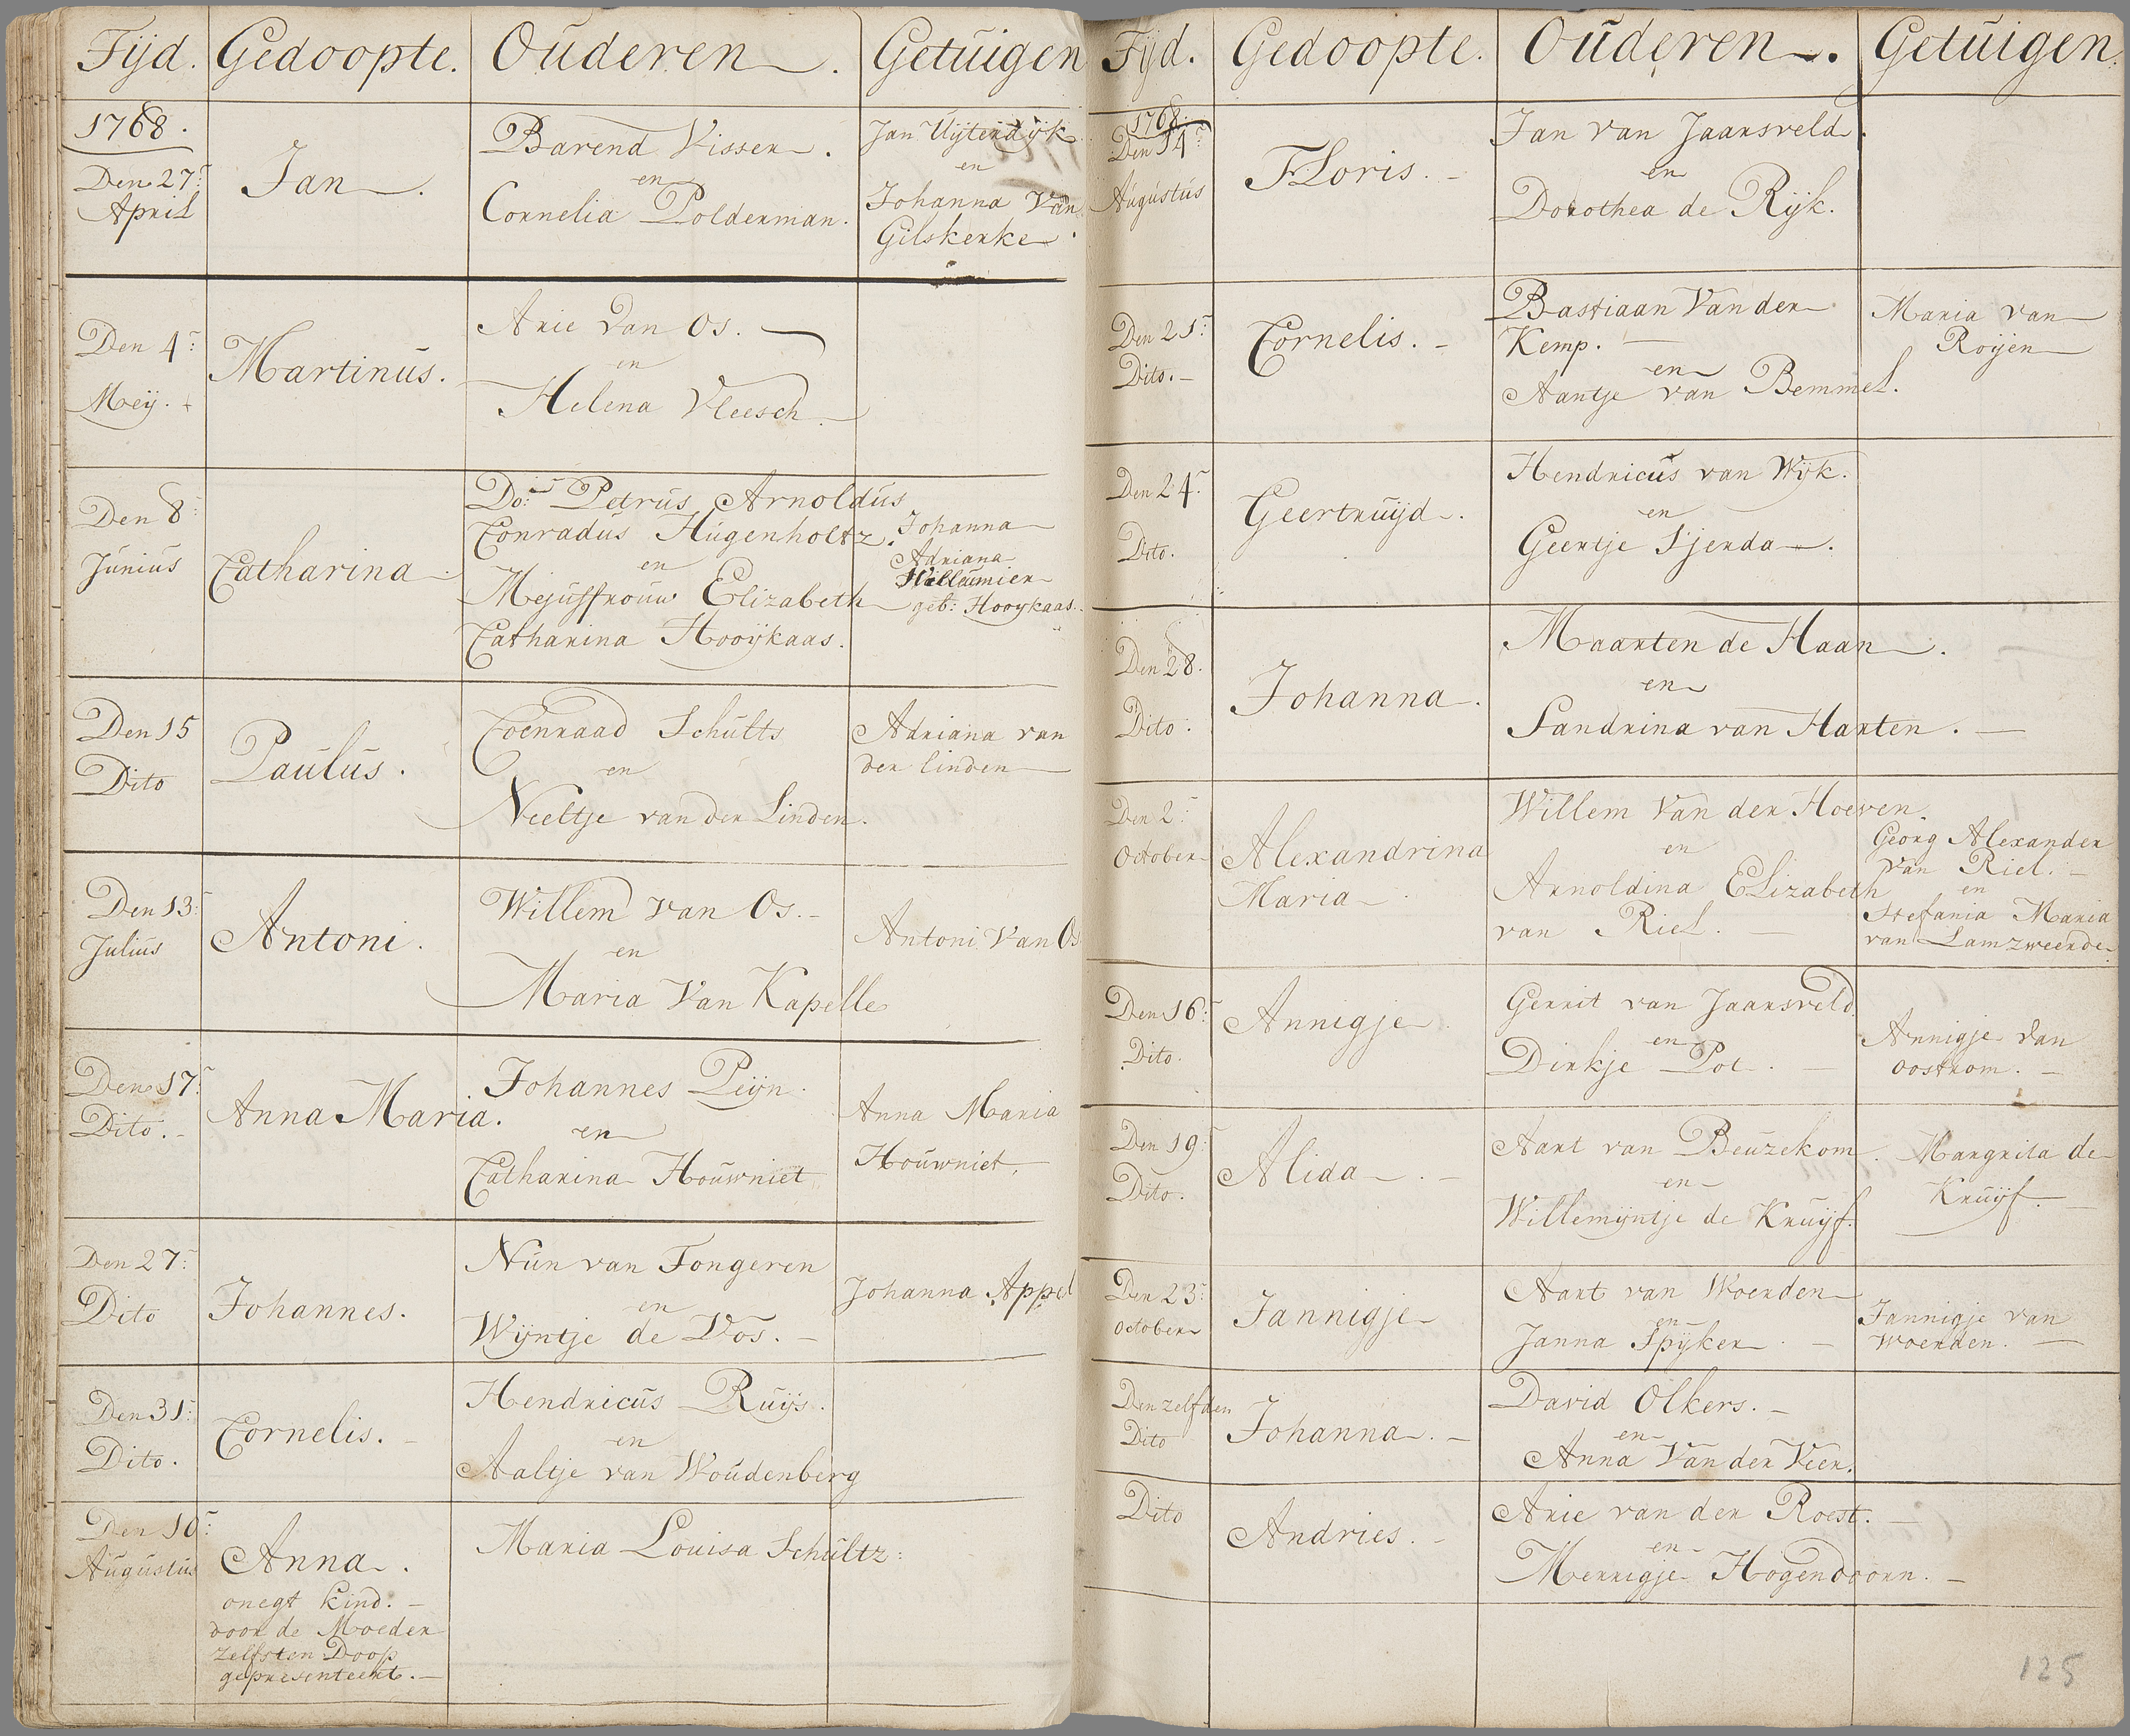 Tijd. Gedoopte. Ouderen. Getuigen
1768.
Den 27:
April
Jan.
Barend Visser.
en
Cornelia Polderman.
Jan Uijtendijk
en
Johanna Van
Gilskerke.
Den 4:
Meij.
Martinus.
Arie van Os.
en
Helena Vleesch.
Den 8:
Junius
Catharina.
Do: Petrus Arnoldus
Conradus Hugenholtz.
en
Mejuffrouw Elizabeth
Catharina Hooijkaas.
Johanna
Adriana
Willaumier
geb: Hooijkaas.
Den 15
Dito
Paulus.
Coenraad Schults
en
Neeltje van der Linden.
Adriana van
der linden
Den 13:
Julius
Antoni.
Willem van Os.
en
Maria Van Kapelle
Antoni Van Os
Den 17:
Dito.
Anna Maria.
Johannes Peijn.
en
Catharina Houwniet
Anna Maria
Houwniet.
Den 27:
Dito
Johannes.
Nün van Tongeren
en
Wijntje de Vos.
Johanna Appel
Den 31:
Dito.
Cornelis.
Hendricus Ruijs.
en
Aaltje van Woudenberg
Den 10:
Augustus
Anna.
onegt kind.
door de Moeder
zelfs ten Doop
gepresenteert.
Maria Louisa Schultz:
Tijd. Gedoopte. Ouderen. Getuigen.
1768.
Den 14:
Augustus
Floris.
Jan van Jaarsveld.
en
Dorothea de Rijk.
Den 21:
Dito.
Cornelis.
Bastiaan Van der
Kemp.
en
Aantje van Bemmel.
Maria van
Roijen
Den 24:
Dito.
Geertruijd.
Hendricus van Wijk.
en
Geertje Sjerda.
Den 28.
Dito.
Johanna.
Maarten de Haan.
en
Sandrina van Harten.
Den 2:
October
Alexandrina
Maria.
Willem Van der Hoeven.
en
Arnoldina Elizabeth
van Riel.
Georg Alexander
van Riel.
en
Stefania Maria
van Lamzweerde.
Den 16:
Dito.
Annigje.
Gerrit van Jaarsveld.
en
Dirkje Pot.
Annigje van
oostrom.
Den 19:
Dito.
Alida.
Aart van Beuzekom.
en
Willemijntje de Kruijf.
Margrita de
Kruijf.
Den 23:
October
Jannigje
Aart van Woerden
en
Janna Spijker.
Jannigje van
Woerden.
Den zelfden
Dito
Johanna.
David Olkers.
en
Anna Van der Veer.
Dito
Andries.
Arie van der Roest.
en
Merrigje Hogendoorn.
125